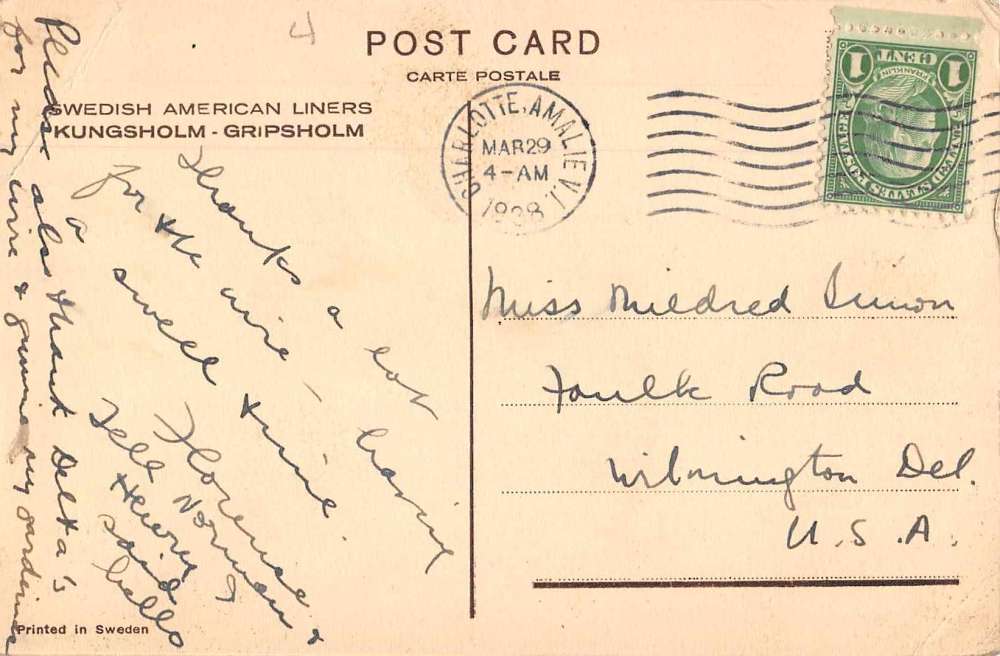 4
POST CARD
CARTE POSTALE
SWEDISH AMERICAN LINERS
KUNGSHOLM - GRIPSHOLM
CHARLOTTE AMALIE V.I.
MAR 29
4-AM
1938
1 CENT 1
FRANKLIN
UNITED STATES POSTAGE
Thanks a lot
for the wire - having
a swell time.
Florence &
Norman
Tell
Henry
said
hello
Please also thank Delta's
for my wire &
my gardenias
Miss Mildred Simon
Faulk Road
Wilmington Del.
U.S.A.
Printed in Sweden